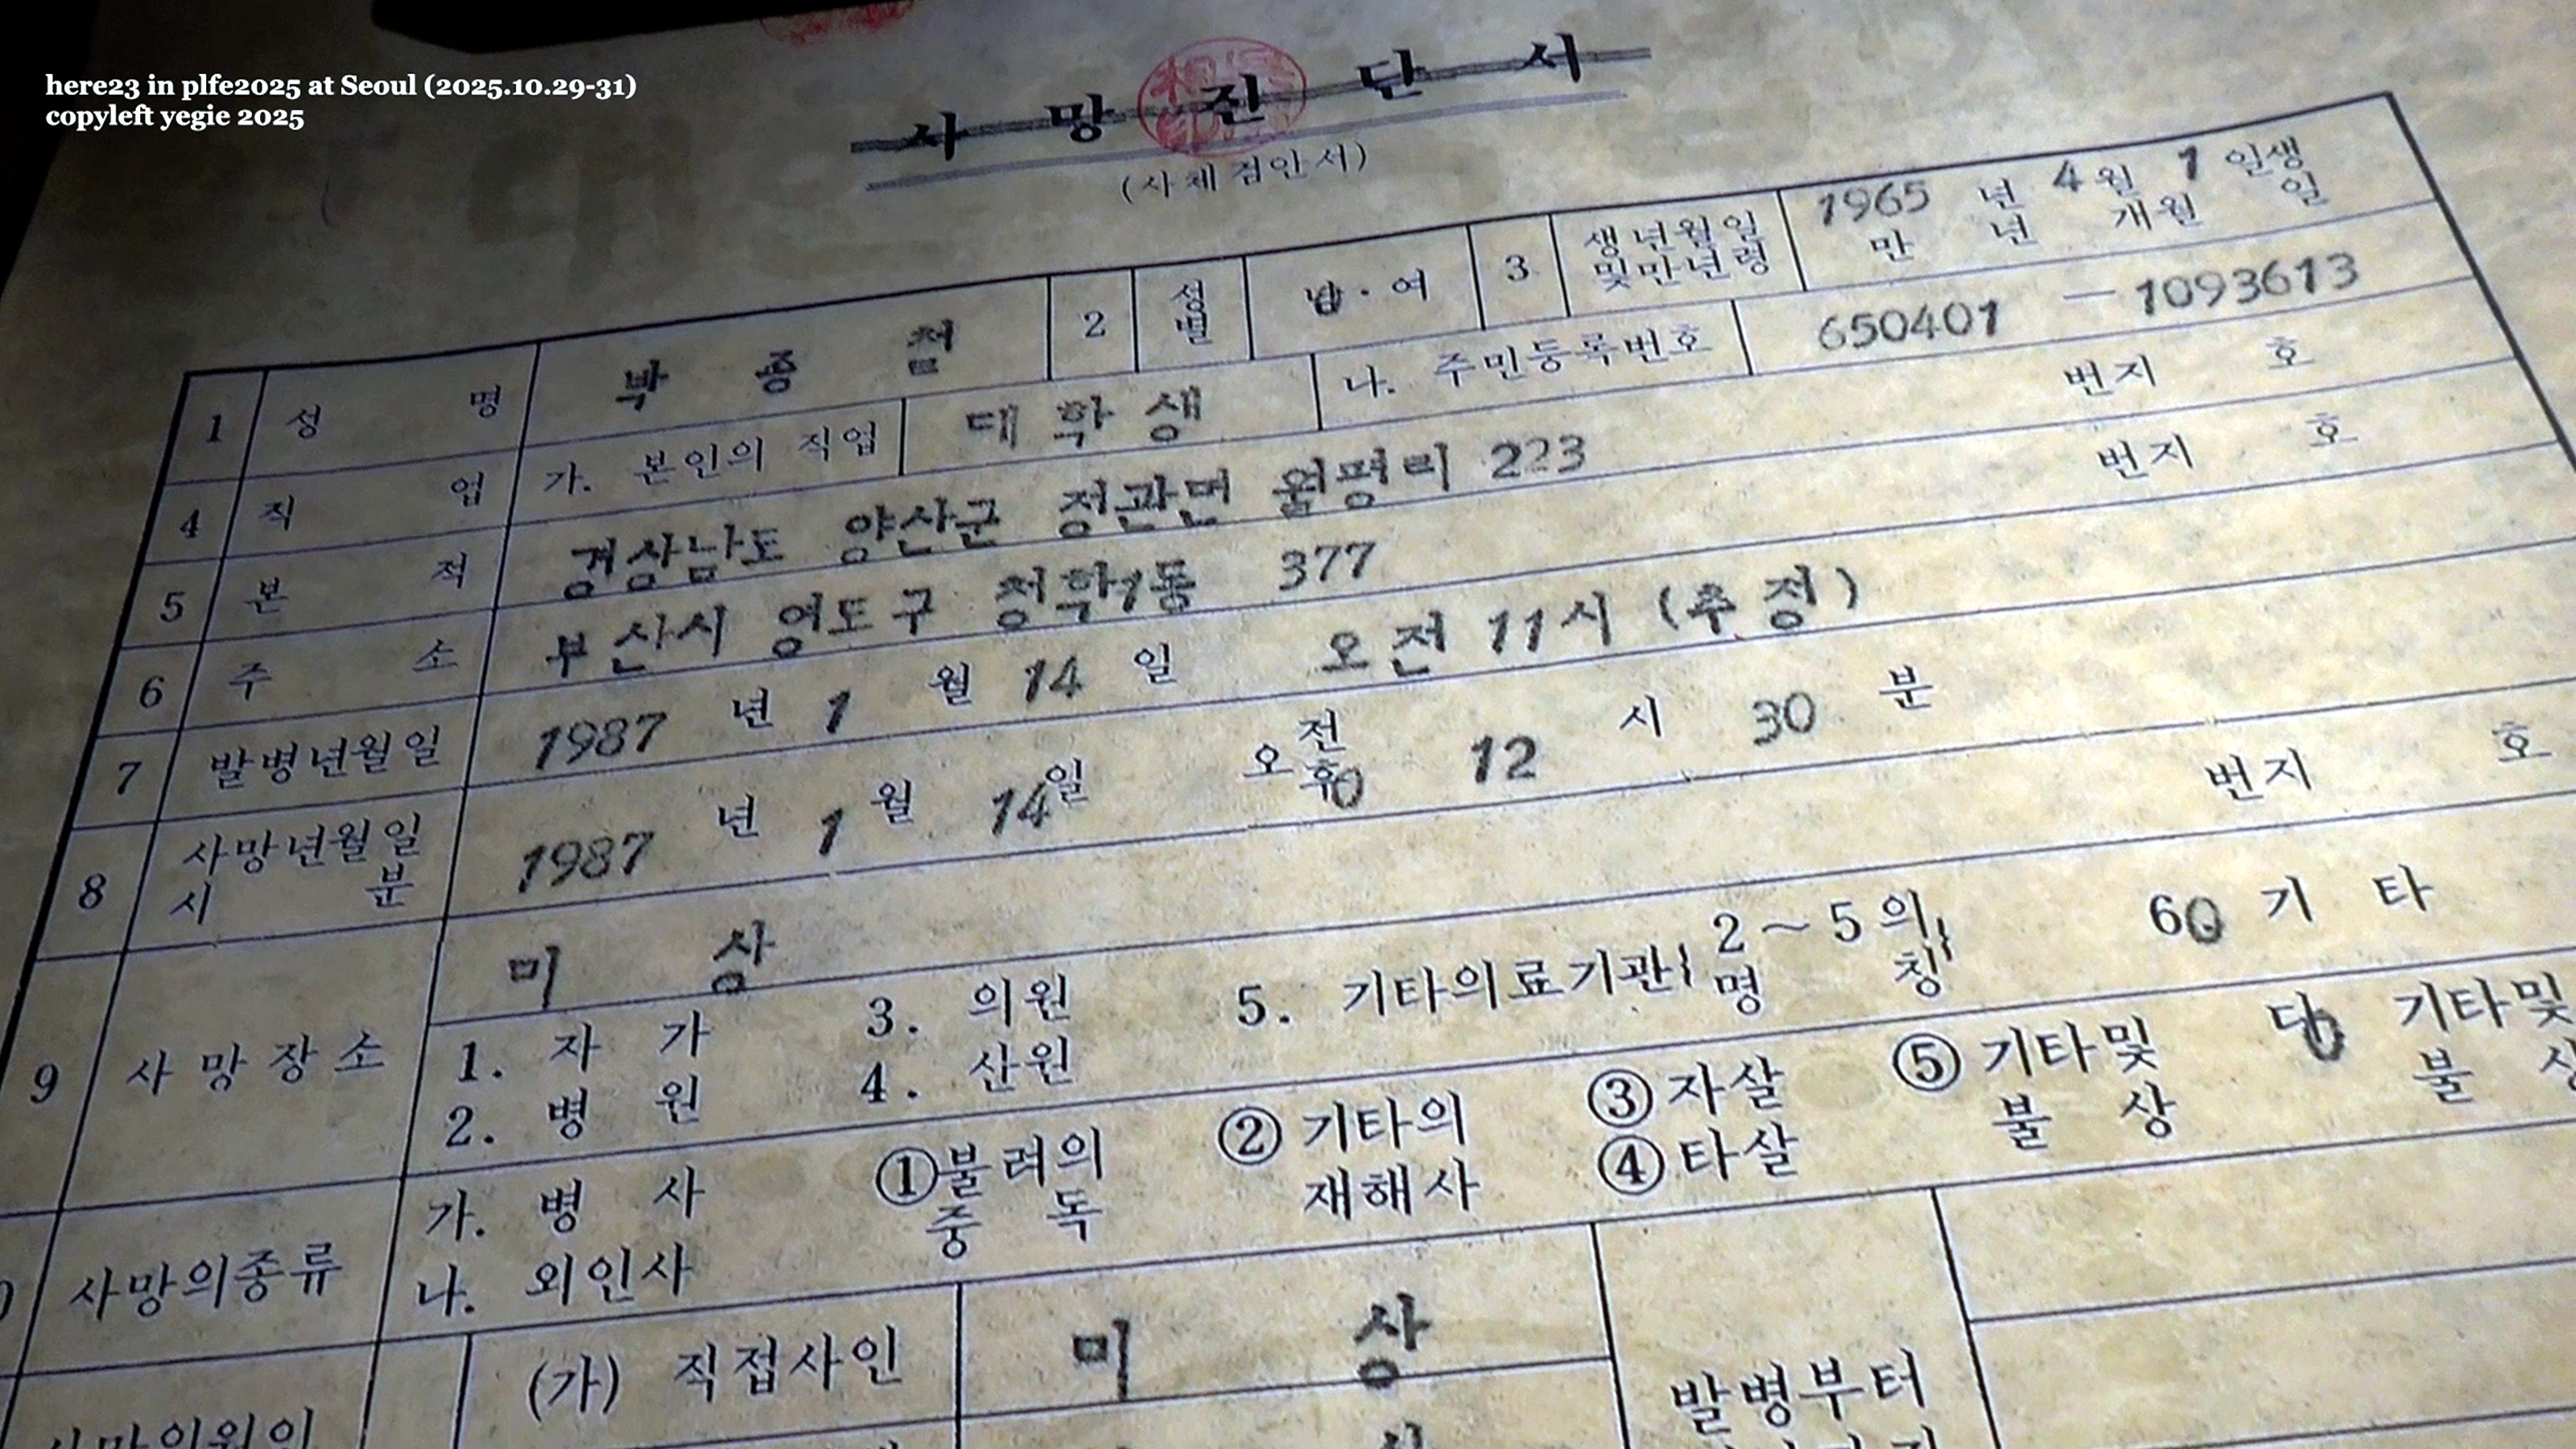 here23 in plfe2025 at Seoul (2025.10.29-31)
copyleft yegie 2025
사 망 진 단 서
(사체검안서)
1 성 명 박 종 철 2 성별 남·여 3 생년월일 및만년령 1965 년 4 월 1 일생
만 년 개월 일
4 직 업 가. 본인의 직업 대학생 나. 주민등록번호 650401 — 1093613
5 본 적 경상남도 양산군 정관면 월평리 223 번지 호
6 주 소 부산시 영도구 청학1동 377 번지 호
7 발병년월일 1987 년 1 월 14 일 오전 11시 (추정)
8 사망년월일 시 분 1987 년 1 월 14 일 오 전 후 12 시 30 분
9 사망장소 미 상 번지 호
1. 자 가 3. 의원 5. 기타의료기관 2~5의 명 칭 6 기 타
2. 병 원 4. 산원
사망의종류 가. 병 사 ①불려의 중 독 ② 기타의 재해사 ③ 자살 ⑤ 기타및 불 상 다 기타및 불
나. 외인사 ④ 타살
(가) 직접사인 미 상 발병부터